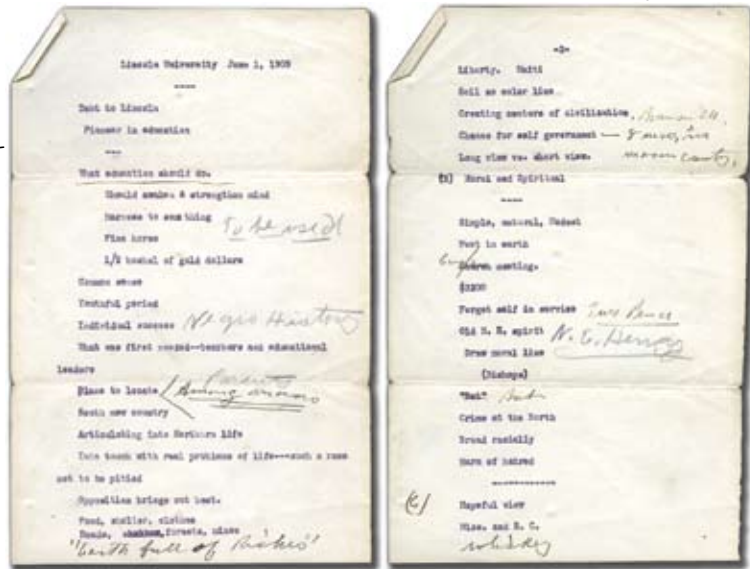 Lincoln University June 1, 1909
----
Debt to Lincoln
Pioneer in education
---
What education should do.
Should awaken & strengthen mind
Harness to something
To be used!
Fine horse
1/2 bushel of gold dollars
Common sense
Youthful period
Individual success Negro History
What was first needed--teachers and educational
leaders
Place to locate
Among
South new country
Articulating into Northern life
Into touch with real problems of life---such a race
not to be pitied
Opposition brings out best.
Food, shelter, clothes
Roads, forests, mines
"Earth full of Riches"
-2-
Liberty. Haiti
Soil no color line
Creating centers of civilization.
Chance for self government --
Long view vs. short view.
Moral and Spiritual
----
Simple, natural, Modest
Feet in earth
meeting.
Forget self in service
Old N. E. spirit
Draw moral line
(Bishops)
Crime at the North
Broad racially
Harm of hatred
------------
Hopeful view
Miss. and S. C.
whiskey